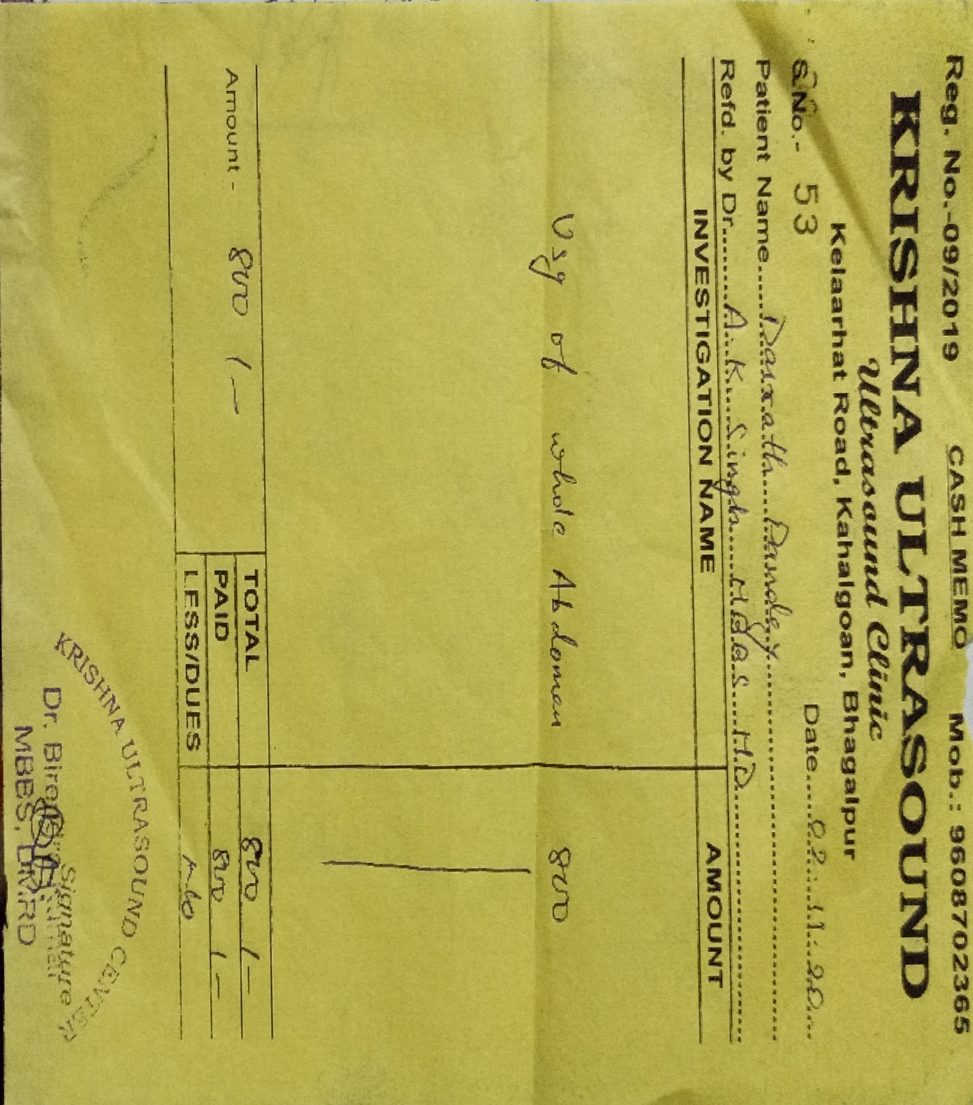 Reg. No.-09/2019 CASH MEMO Mob.: 9608702365
KRISHNA ULTRASOUND
Ultrasound Clinic
Kelaarhat Road, Kahalgoan, Bhagalpur
S.No.- 53 Date....02.11.20...
Patient Name.....Dasrath Pandey
Refd. by Dr.....A.K. Singh MBBS MD
INVESTIGATION NAME AMOUNT
Usg of whole Abdomen 800
TOTAL 800/-
Amount - 800/- PAID 800/-
LESS/DUES
KRISHNA ULTRASOUND CENTER
Signature
Dr.
MBBS, DMRD